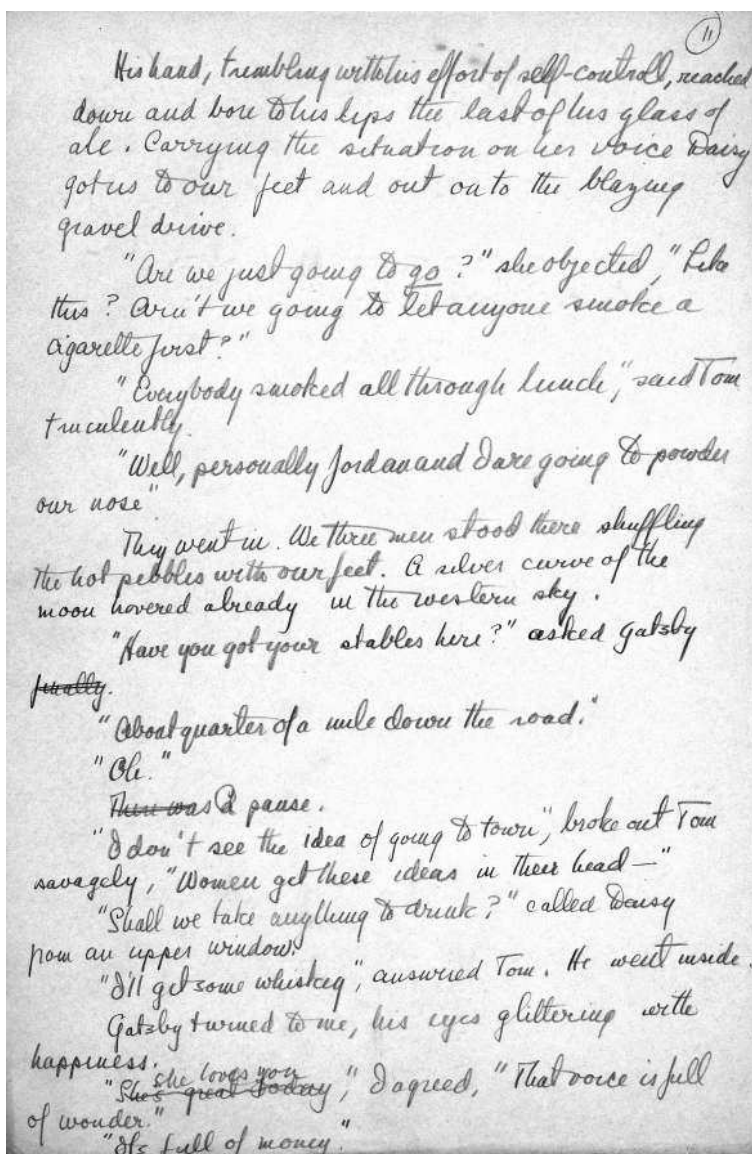 11
His hand, trembling with his effort of self-controll, reached
down and bore to his lips the last of his glass of
ale. Carrying the situation on her voice Daisy
got us to our feet and out onto the blazing
gravel drive.
"Are we just going to go?" she objected, "Like
this? Arn't we going to let anyone smoke a
cigarette first?"
"Everybody smoked all through lunch," said Tom
truculently.
"Well, personally Jordan and I are going to powder
our nose"
They went in. We three men stood there shuffling
the hot pebbles with our feet. A silver curve of the
moon hovered already in the western sky.
"Have you got your stables here?" asked Gatsby
finally.
"About quarter of a mile down the road."
"Oh."
There was a pause.
"I don't see the idea of going to town", broke out Tom
savagely, "Women get these ideas in their head—"
"Shall we take anything to drink?" called Daisy
from an upper window.
"I'll get some whiskey", answered Tom. He went inside.
Gatsby turned to me, his eyes glittering with
happiness.
she loves you
"She's great today," I agreed, "That voice is full
of wonder."
"It's full of money."